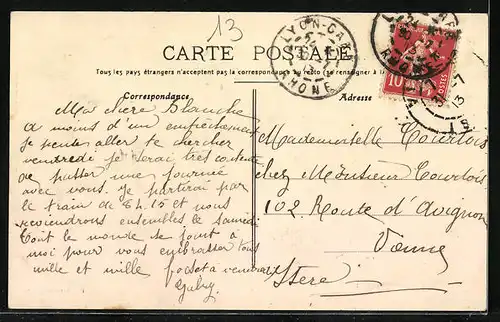 13
CARTE POSTALE
Tous les pays étrangers n'acceptent pas la correspondance au recto (se renseigner à la
Correspondance
Adresse
LYON-GARE
RHONE
10
13
Ma chère Blanche
a moins d'un empêchement
je pense aller te chercher
vendredi je serai très contente
de passer une journée
avec vous. je partirai par
le train de 6h.15 et nous
reviendrons ensembles le samedi
tout le monde se joint à
moi pour vous embrasser tous
mille et mille
Gaby
Mademoiselle Tourtois
chez Monsieur Tourtois
102 Route d'Avignon
Vienne
Isère